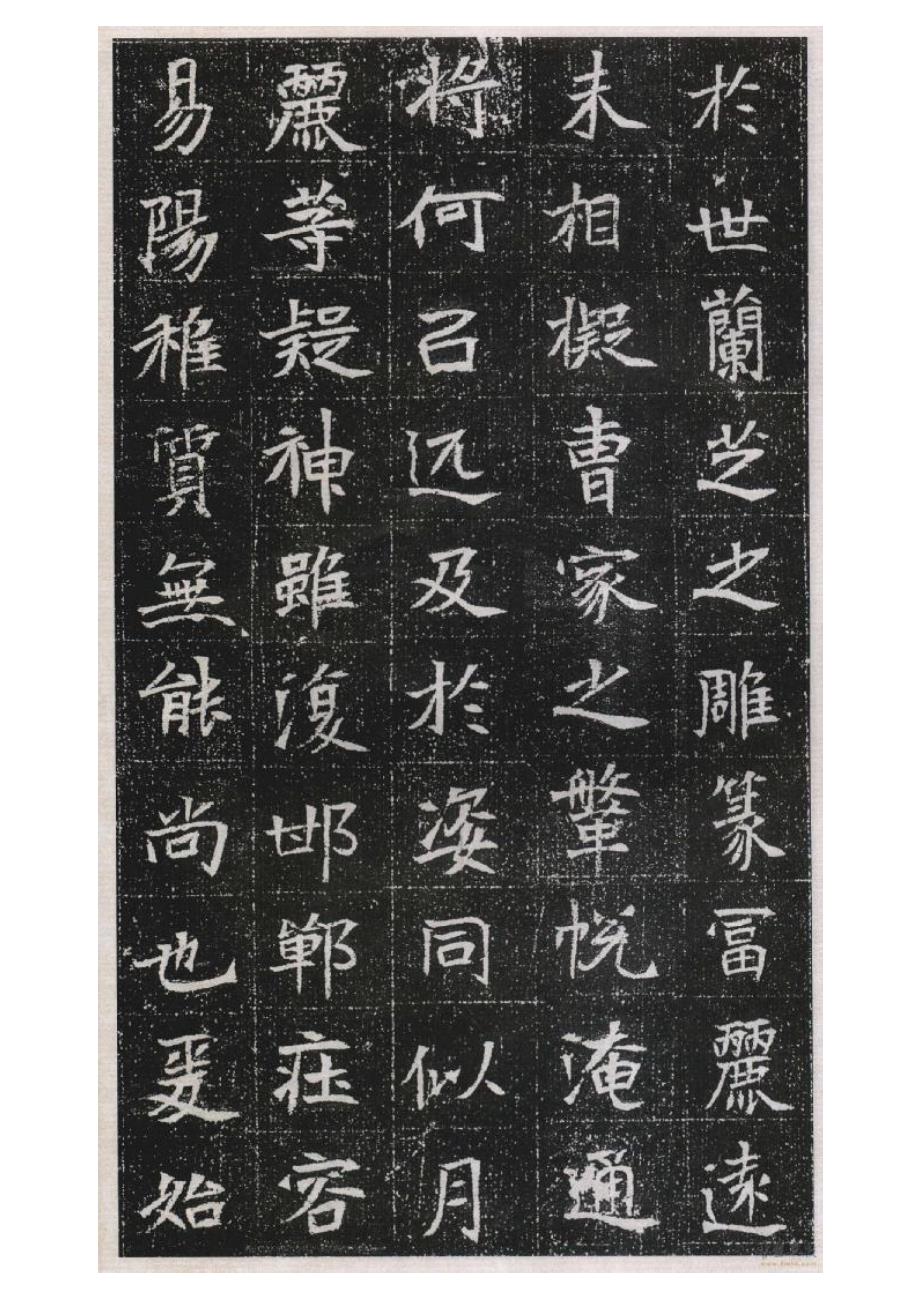 於世蘭芝之雕篆冨麗遠
未相擬曹家之鞶帨淹通
将何㠯远及於姿同似月
麗等疑神雖澓邯鄲莊容
易陽稚質無能尚也爰始